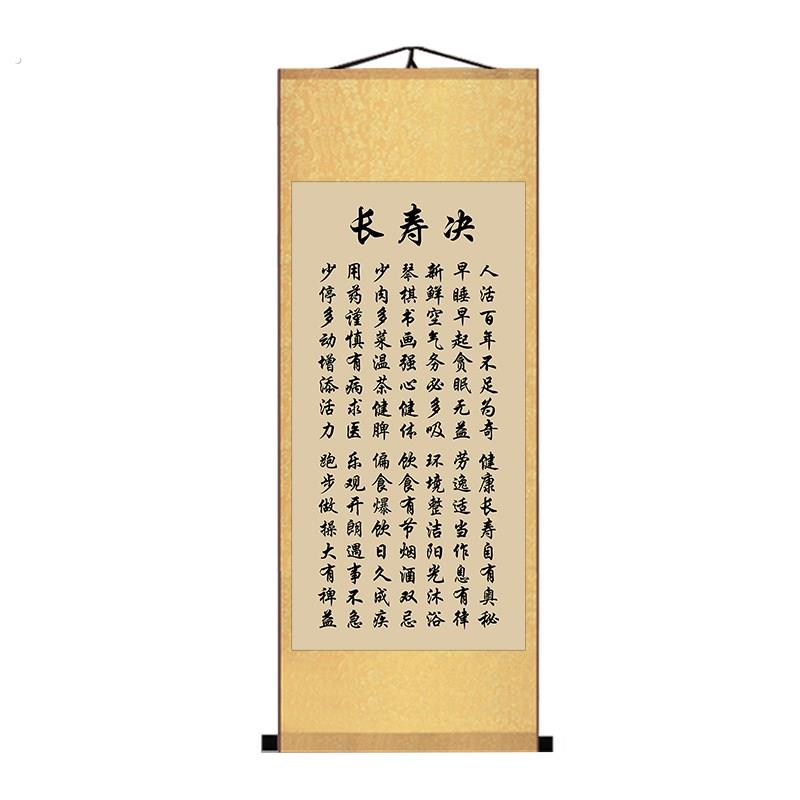 长寿决
人活百年不足为奇 健康长寿自有奥秘
早睡早起贪眠无益 劳逸适当作息有律
新鲜空气务必多吸 环境整洁阳光沐浴
琴棋书画强心健体 饮食有节烟酒双忌
少肉多菜温茶健脾 偏食爆饮日久成疾
用药谨慎有病求医 乐观开朗遇事不急
少停多动增添活力 跑步做操大有裨益